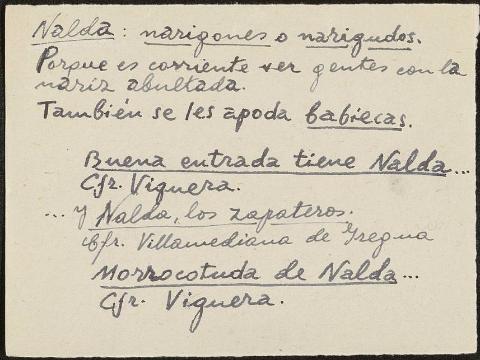 Nalda: narigones o narigudos.
Porque es corriente ver gentes con la
nariz abultada.
También se les apoda babiecas.
Buena entrada tiene Nalda...
Cfr. Viguera.
... y Nalda, los zapateros.
Cfr. Villamediana de Iregua
Morrocotuda de Nalda...
Cfr. Viguera.